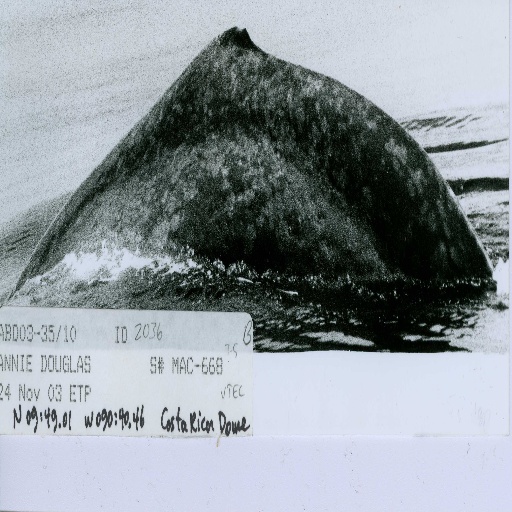 ABD03-35/10 ID 2036
ANNIE DOUGLAS S# MAC-668
24 Nov 03 ETP VTEC
N 09:49.01 W090:40.46 Costa Rican Dome